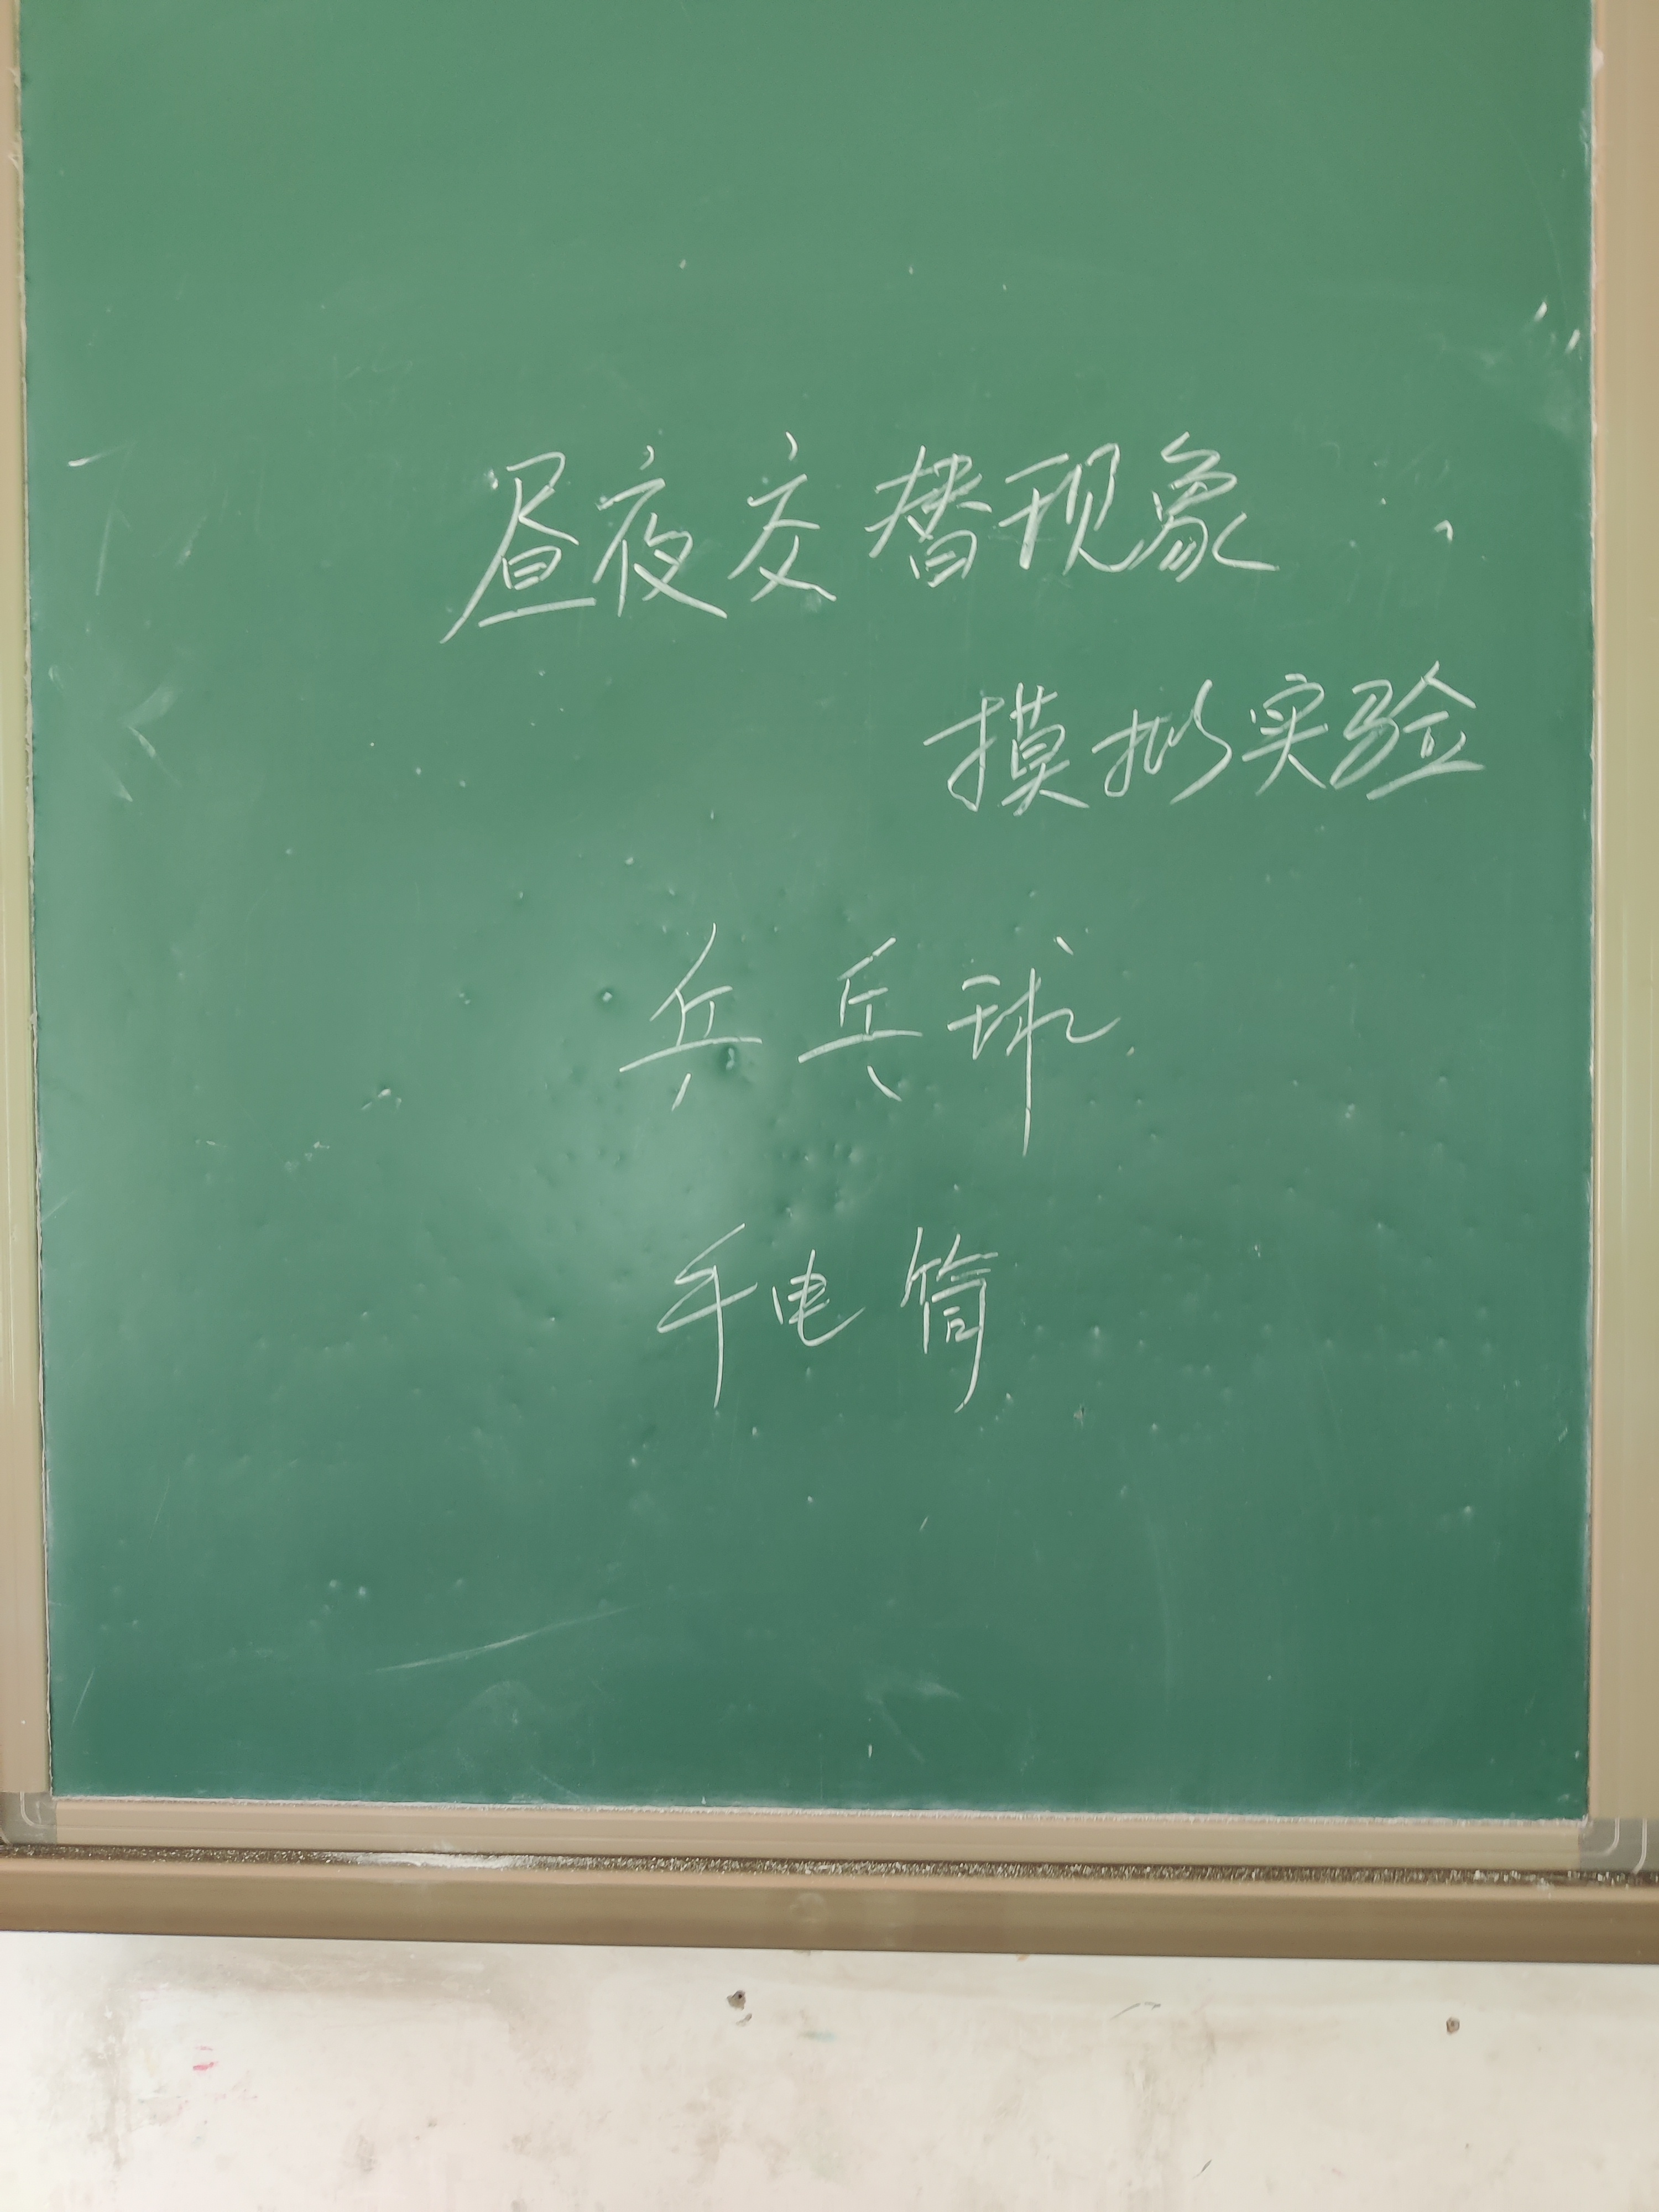 昼夜交替现象
摸拟实验
乒乓球
手电筒